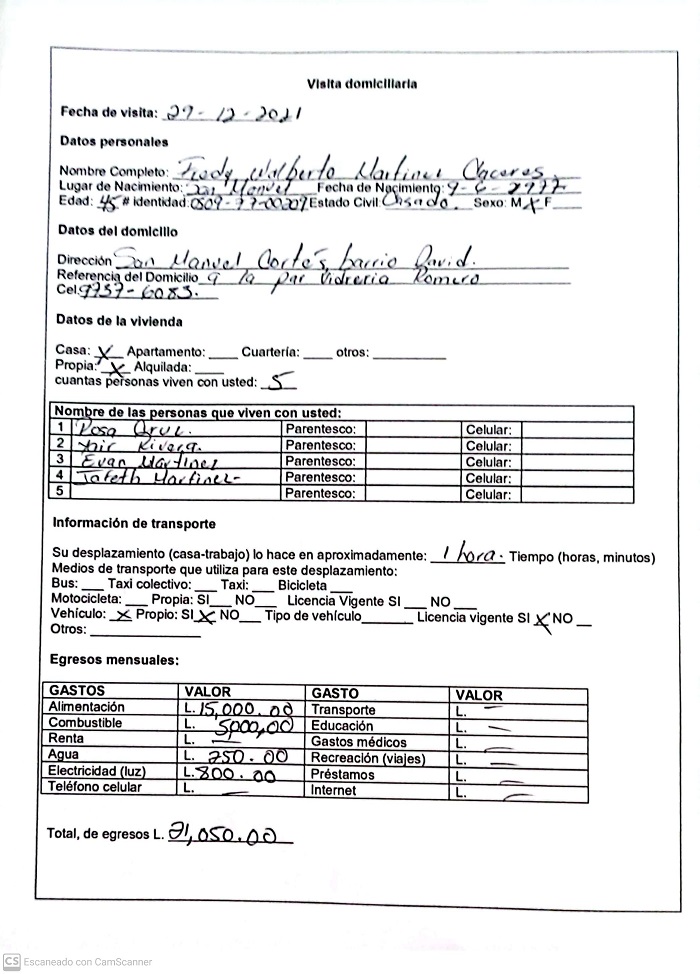 Visita domiciliaria
Fecha de visita: 29-12-2021
Datos personales
Nombre Completo: Fredy Walberto Martinez Caceres
Lugar de Nacimiento: San Manuel Fecha de Nacimiento: 9-6-1977
Edad: 45 # identidad: 0509-77-00209 Estado Civil: Casado. Sexo: M X F
Datos del domicilio
Dirección San Manuel Cortés, barrio David.
Referencia del Domicilio a la par Vidreria Romero
Cel. 9757-6083.
Datos de la vivienda
Casa: X Apartamento: ____ Cuartería: ____ otros: ____
Propia: X Alquilada: ____
cuantas personas viven con usted: 5
Nombre de las personas que viven con usted:
1 Rosa Cruz. Parentesco: Celular:
2 Rivera. Parentesco: Celular:
3 Evan Martinez Parentesco: Celular:
4 Jafeth Martinez- Parentesco: Celular:
5 Parentesco: Celular:
Información de transporte
Su desplazamiento (casa-trabajo) lo hace en aproximadamente: 1 hora. Tiempo (horas, minutos)
Medios de transporte que utiliza para este desplazamiento:
Bus: ___ Taxi colectivo: ___ Taxi: ___ Bicicleta ___
Motocicleta: ___ Propia: SI___ NO___ Licencia Vigente SI ___ NO ___
Vehículo: X Propio: SI X NO___ Tipo de vehículo______ Licencia vigente SI X NO __
Otros: ____
Egresos mensuales:
GASTOS VALOR GASTO VALOR
Alimentación L. 15,000.00 Transporte L. —
Combustible L. 5000,00 Educación L. —
Renta L. — Gastos médicos L. —
Agua L. 250.00 Recreación (viajes) L. —
Electricidad (luz) L. 800.00 Préstamos L. —
Teléfono celular L. — Internet L. —
Total, de egresos L. 21,050.00
CS Escaneado con CamScanner